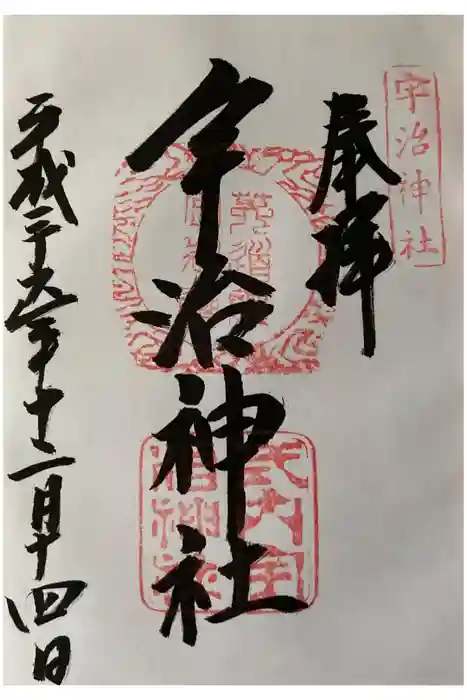 宇治神社
奉拝
宇治神社
平成二十九年十二月十四日